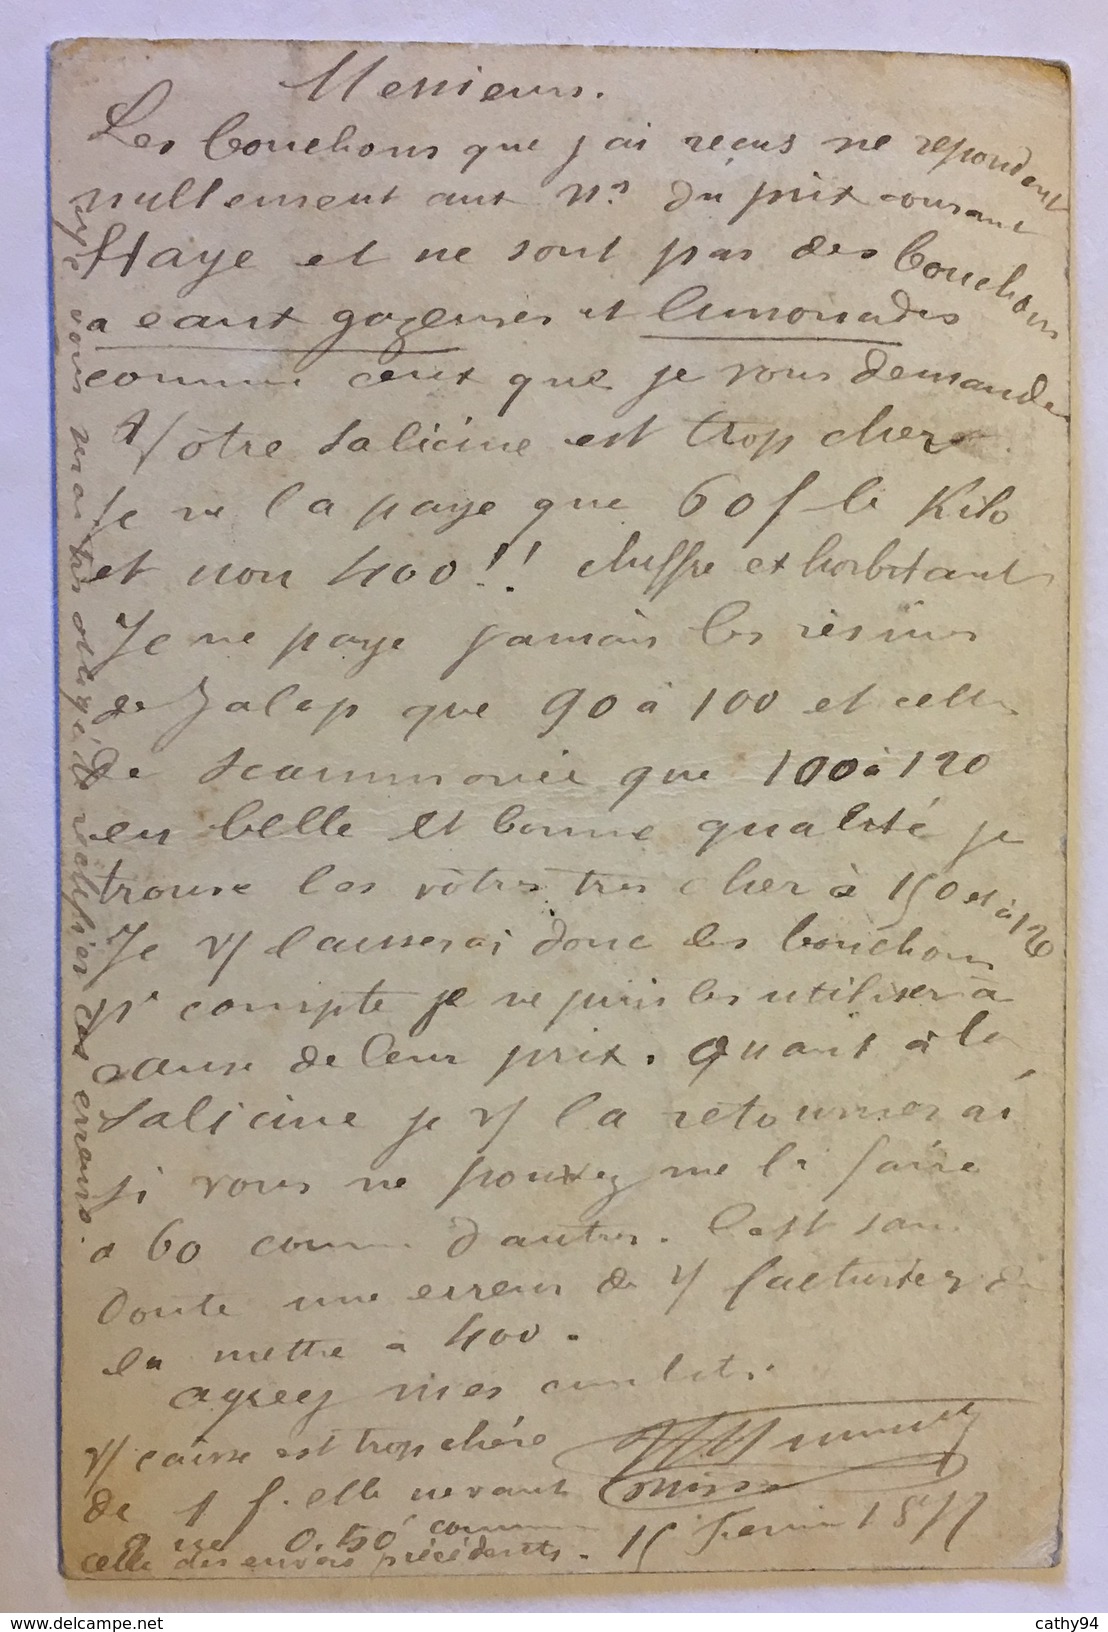 Messieurs.
Les bouchons que j'ai reçus ne repondent
nullement aux Nos du prix courant
Haye et ne sont pas des bouchons
a eaux gazeuses et limonades
comme ceux que je vous demande
Votre salicine est trop chere
Je ne la paye que 60 f le Kilo
et non 400!! chiffre exhorbitant
Je ne paye jamais les résines
de Jalap que 90 à 100 et celle
de scammonée que 100 à 120
en belle et bonne qualité je
trouve les vôtres tres cher à 150 et à 120
Je V/ laisserai donc les bouchons
pr compte je ne puis les utiliser à
cause de leur prix. Quant à la
Salicine je V/ la retournerai
si vous ne pouvez me la faire
a 60 comme d'autres. C'est sans
doute une erreur de V/ de
la mettre a 400.
agreez mes
V/ caisse est trop chére
de 1 f. elle ne vaut
que 0.50 comme
celle des envois précédents.
15 Fevrier 1877
vous serai très obligé de vérifier ces erreurs.
www.delcampe.net
cathy94